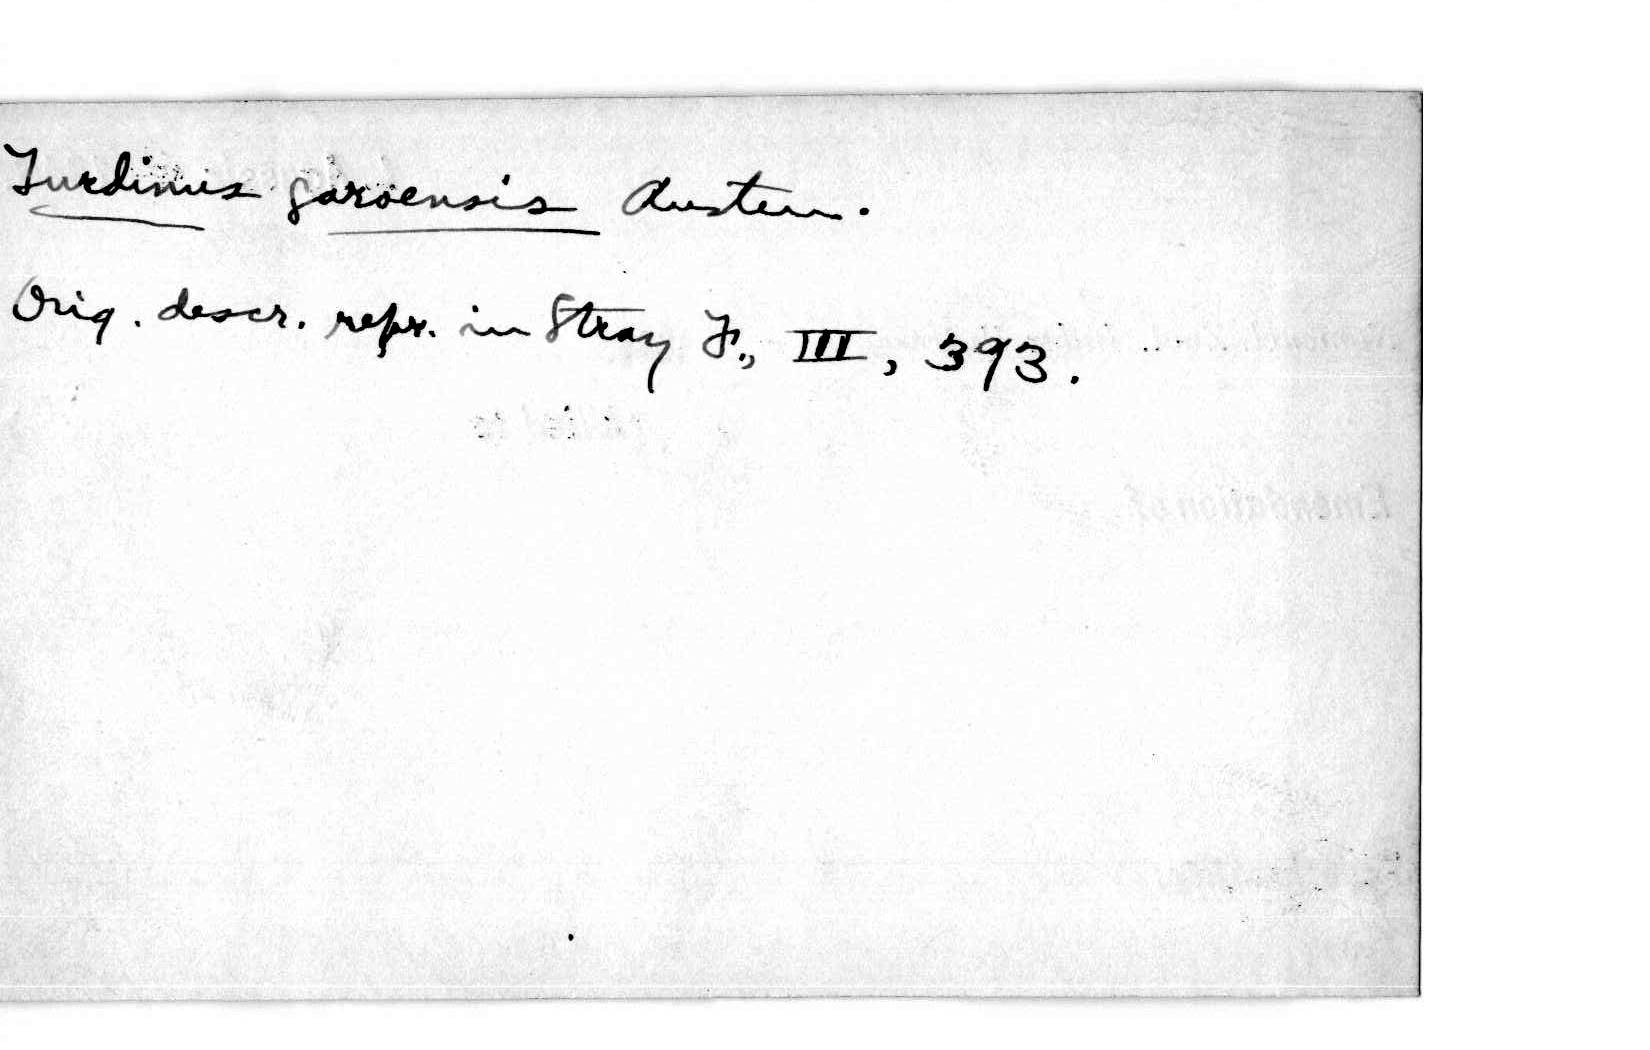 Turdinus garoensis Austen.
Orig. descr. repr. in Stray F., III, 393.